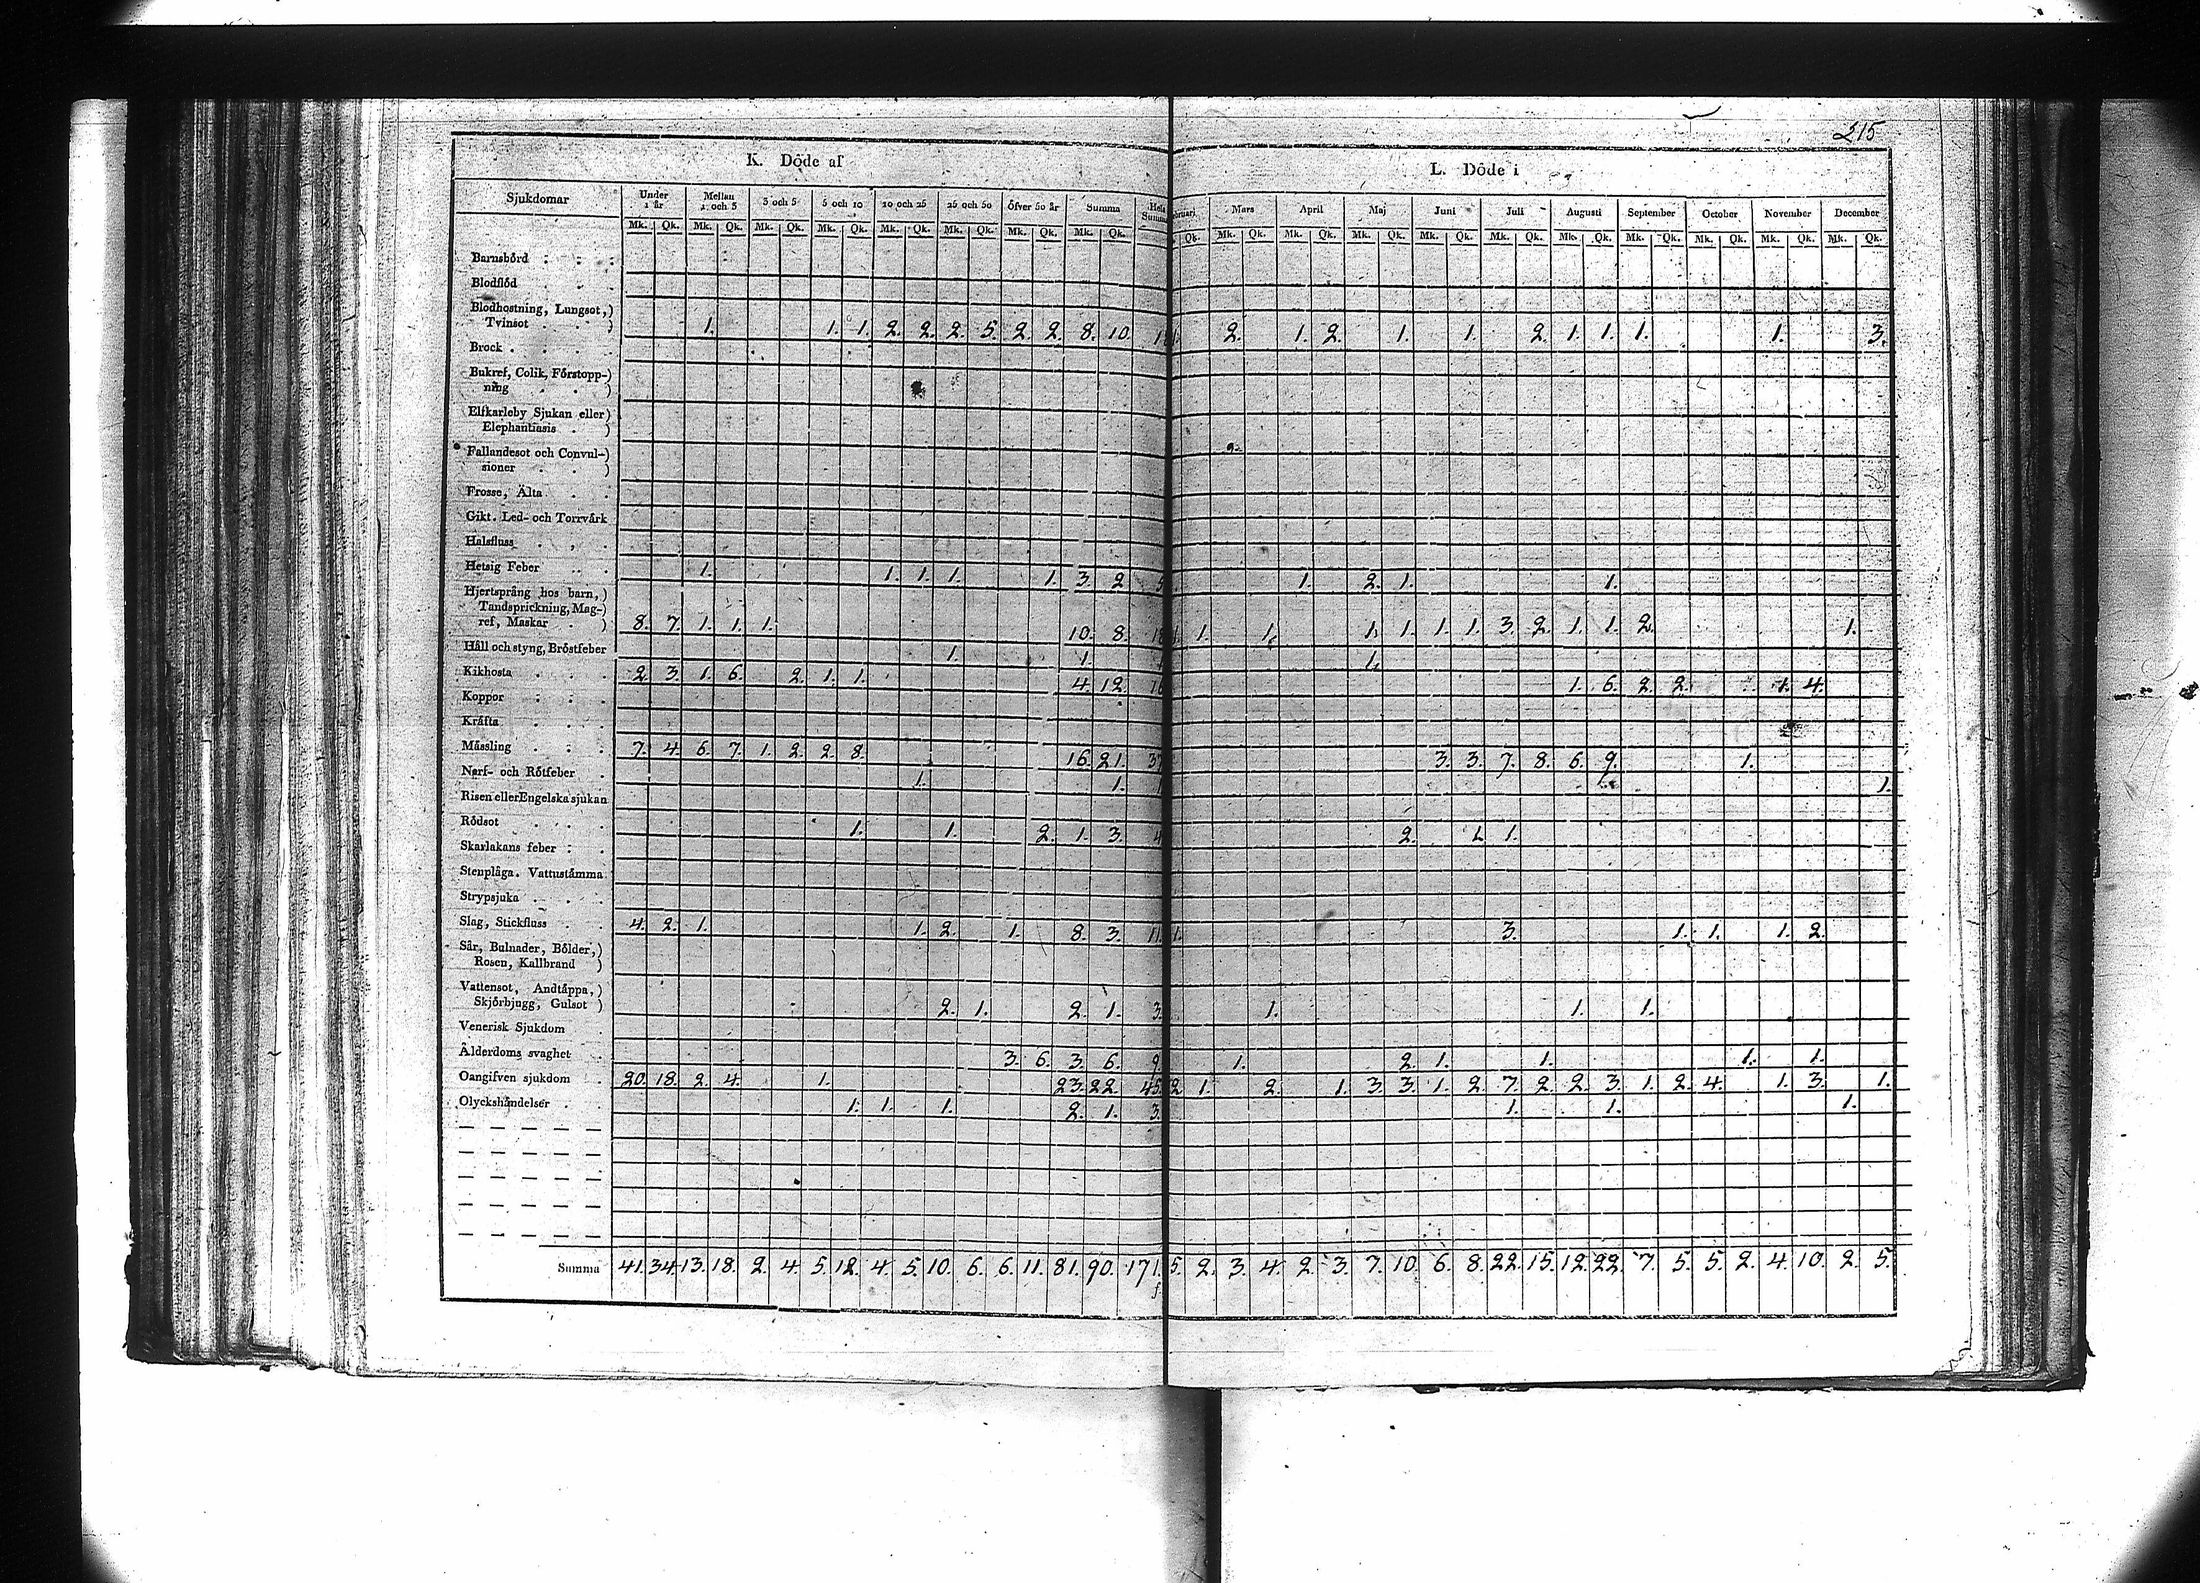 215
K. Döde af
L. Döde i
Sjukdomar Under 1 år Mellan 1 och 3 3 och 5 5 och 10 10 och 25 25 och 50 Öfver 50 år Summa Hela Summa
Mars April Maj Juni Juli Augusti September October November December
Mk. Qk. Mk. Qk. Mk. Qk. Mk. Qk. Mk. Qk. Mk. Qk. Mk. Qk. Mk. Qk.
Qk. Mk. Qk. Mk. Qk. Mk. Qk. Mk. Qk. Mk. Qk. Mk. Qk. Mk. Qk. Mk. Qk. Mk. Qk. Mk. Qk.
Barnsbörd
Blodflöd
Blodhostning, Lungsot,)
Tvinsot ) 1. 1. 1. 2. 2. 2. 5. 2. 2. 8. 10. 2. 1. 2. 1. 1. 2. 1. 1. 1. 1. 3.
Brock
Bukref, Colik, Förstopp-)
ning )
Elfkarleby Sjukan eller)
Elephantiasis )
Fallandesot och Convul-)
sioner )
Frosse, Älta
Gikt. Led- och Torrvärk
Halsfluss
Hetsig Feber 1. 1. 1. 1. 1. 3. 2. 5 1. 2. 1. 1.
Hjertsprång hos barn,)
Tandsprickning, Mag-)
ref, Maskar ) 8. 7. 1. 1. 1. 10. 8. 18 1. 1. 1. 1. 1. 1. 3. 2. 1. 1. 2. 1.
Håll och styng, Bröstfeber 1. 1. 1.
Kikhosta 2. 3. 1. 6. 2. 1. 1. 4. 12. 16 1. 6. 2. 2. 1. 4.
Koppor
Kräfta
Mässling 7. 4. 6. 7. 1. 2. 2. 8. 16. 21. 37 3. 3. 7. 8. 6. 9. 1.
Nerf- och Rötfeber 1. 1. 1.
Risen eller Engelska sjukan
Rödsot 1. 1. 2. 1. 3. 4 2. 1. 1.
Skarlakans feber
Stenplåga. Vattustämma
Strypsjuka
Slag, Stickfluss 4. 2. 1. 1. 2. 1. 8. 3. 11. 1. 3. 1. 1. 1. 2.
Sår, Bulnader, Bölder,)
Rosen, Kallbrand )
Vattensot, Andtäppa,)
Skjörbjugg, Gulsot ) 2. 1. 2. 1. 3. 1. 1. 1.
Venerisk Sjukdom
Ålderdoms svaghet 3. 6. 3. 6. 9. 1. 2. 1. 1. 1. 1.
Oangifven sjukdom 20. 18. 2. 4. 1. 23. 22. 45. 2. 1. 2. 1. 3. 3. 1. 2. 7. 2. 2. 3. 1. 2. 4. 1. 3. 1.
Olyckshändelser 1. 1. 1. 2. 1. 3. 1. 1. 1.
Summa 41. 34. 13. 18. 2. 4. 5. 12. 4. 5. 10. 6. 6. 11. 81. 90. 171. 5. 2. 3. 4. 2. 3. 7. 10. 6. 8. 22. 15. 12. 22. 7. 5. 5. 2. 4. 10. 2. 5.